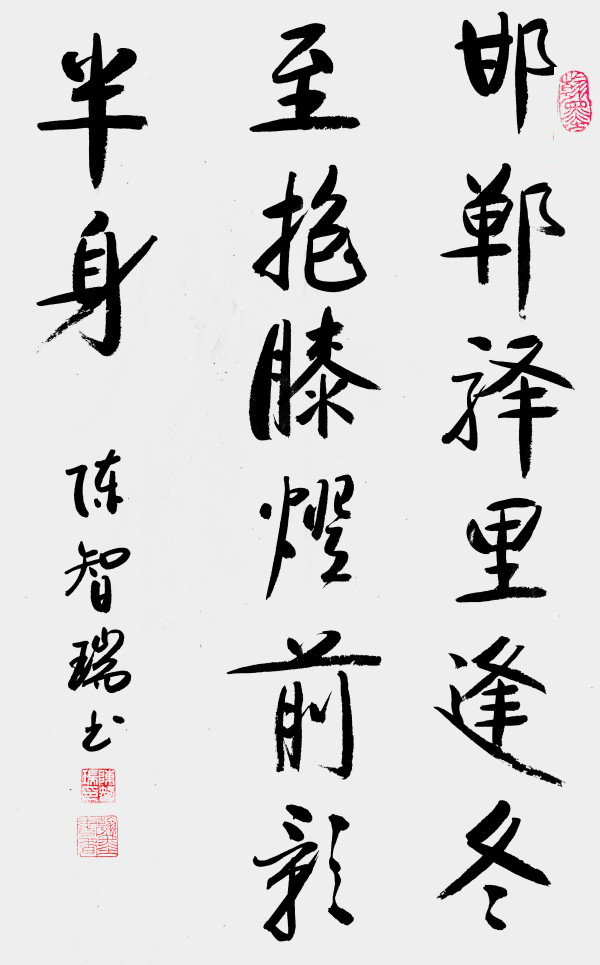 邯郸驿里逢冬
至抱膝燈前影
半身
陈智瑞书